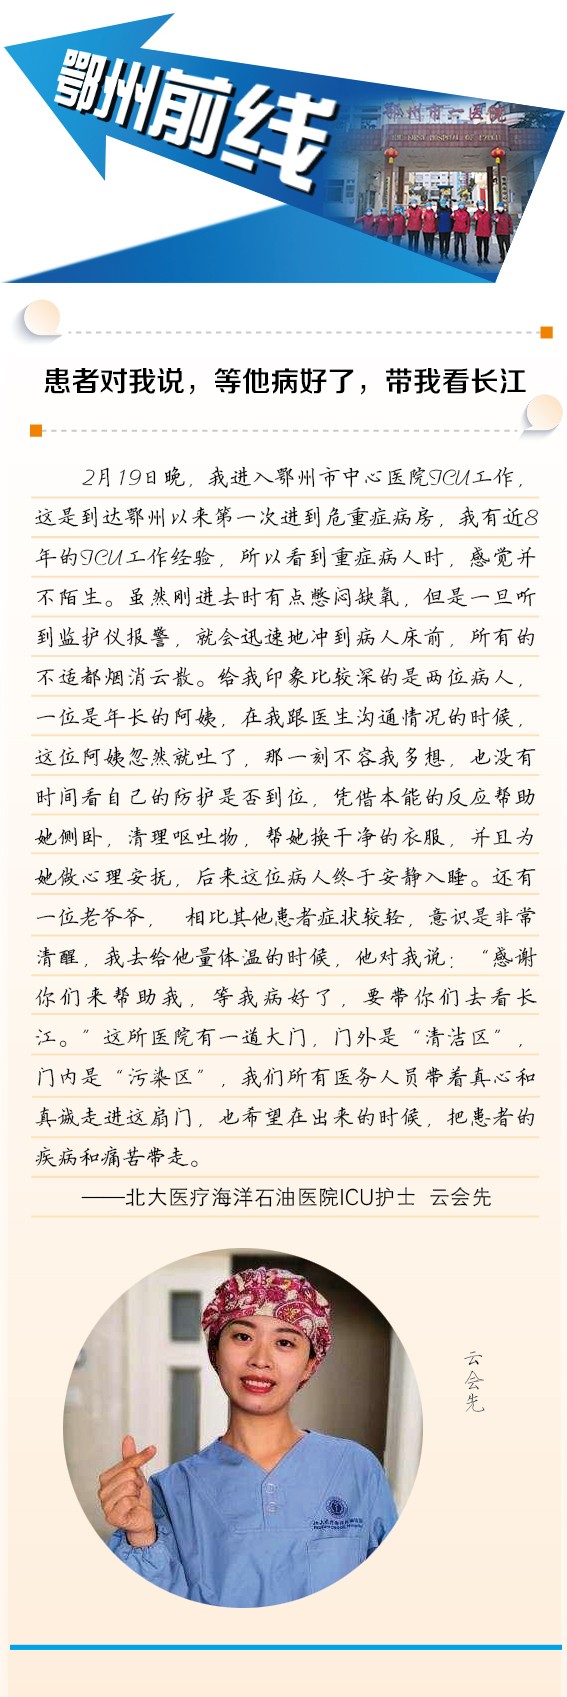 鄂州前线
鄂州市一医院
患者对我说，等他病好了，带我看长江
2月19日晚，我进入鄂州市中心医院ICU工作，
这是到达鄂州以来第一次进到危重症病房，我有近8
年的ICU工作经验，所以看到重症病人时，感觉并
不陌生。虽然刚进去时有点憋闷缺氧，但是一旦听
到监护仪报警，就会迅速地冲到病人床前，所有的
不适都烟消云散。给我印象比较深的是两位病人，
一位是年长的阿姨，在我跟医生沟通情况的时候，
这位阿姨忽然就吐了，那一刻不容我多想，也没有
时间看自己的防护是否到位，凭借本能的反应帮助
她侧卧，清理呕吐物，帮她换干净的衣服，并且为
她做心理安抚，后来这位病人终于安静入睡。还有
一位老爷爷， 相比其他患者症状较轻，意识是非常
清醒，我去给他量体温的时候，他对我说：“感谢
你们来帮助我，等我病好了，要带你们去看长
江。”这所医院有一道大门，门外是“清洁区”，
门内是“污染区”，我们所有医务人员带着真心和
真诚走进这扇门，也希望在出来的时候，把患者的
疾病和痛苦带走。
——北大医疗海洋石油医院ICU护士 云会先
云会先